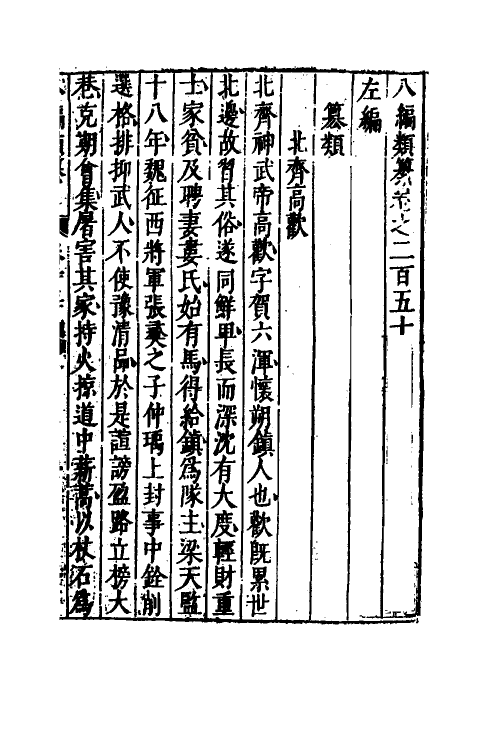 八編類纂卷之二百五十
左編
篡類
北齊高歡
北齊神武帝高歡字賀六渾懷朔鎮人也歡既累世
北邊故習其俗遂同鮮卑長而深沈有大度輕財重
士家貧及聘妻婁氏始有馬得給鎮爲隊主梁天監
十八年魏征西將軍張彝之子仲瑀上封事中銓削
選格排抑武人不使豫清品於是諠謗盈路立榜大
巷克期會集屠害其家持火掠道中薪蒿以杖石爲